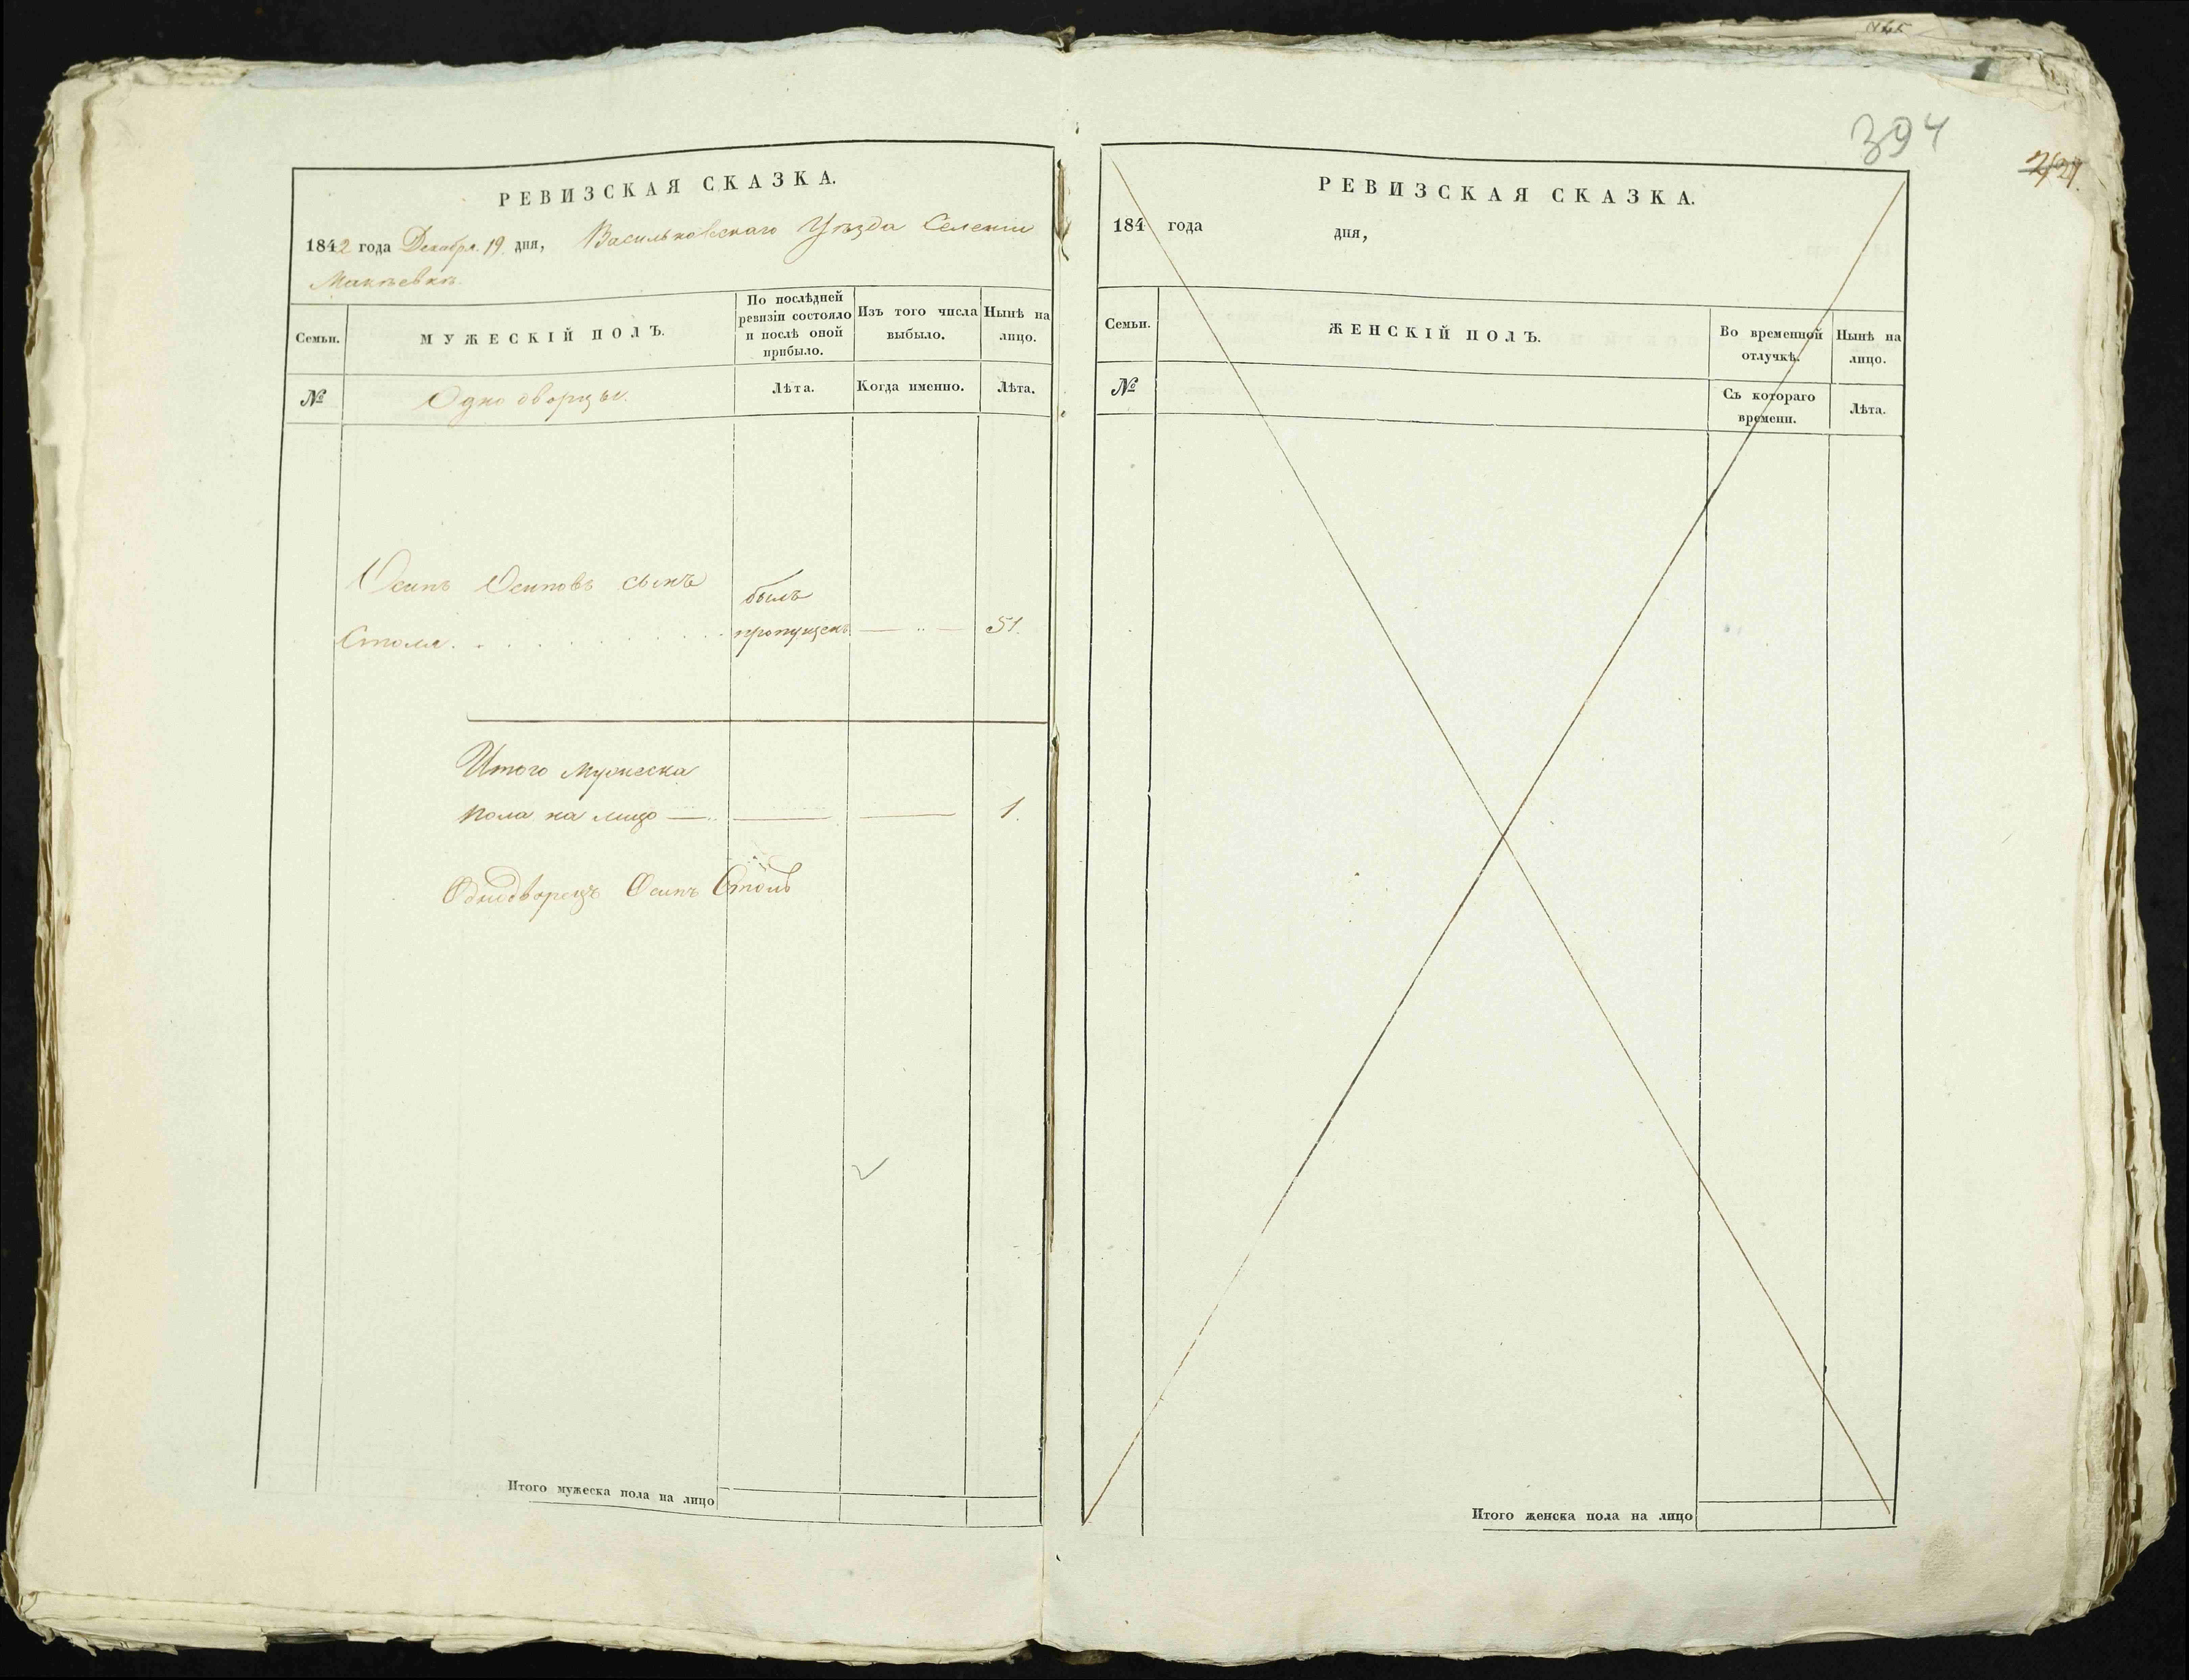 394
РЕВИЗСКАЯ СКАЗКА.
1842 года Декабря 19 дня, Васильковскаго Уѣзда Селении
Макѣевкѣ
Семьи.
МУЖЕСКІЙ ПОЛЪ.
По послѣдней ревизіи состояло и послѣ оной прибыло.
Изъ того числа выбыло.
Нынѣ на лицо.
№
Однодворцы.
Лѣта.
Когда именно.
Лѣта.
Осипъ Осиповъ сынъ
былъ
пропущенъ
51.
Итого мужеска
пола на лицо
1.
Однодворецъ Осипъ
Итого мужеска пола на лицо
РЕВИЗСКАЯ СКАЗКА.
184 года дня,
Семьи.
ЖЕНСКІЙ ПОЛЪ.
Во временной отлучкѣ.
Нынѣ на лицо.
№
Съ котораго времени.
Лѣта.
Итого женска пола на лицо